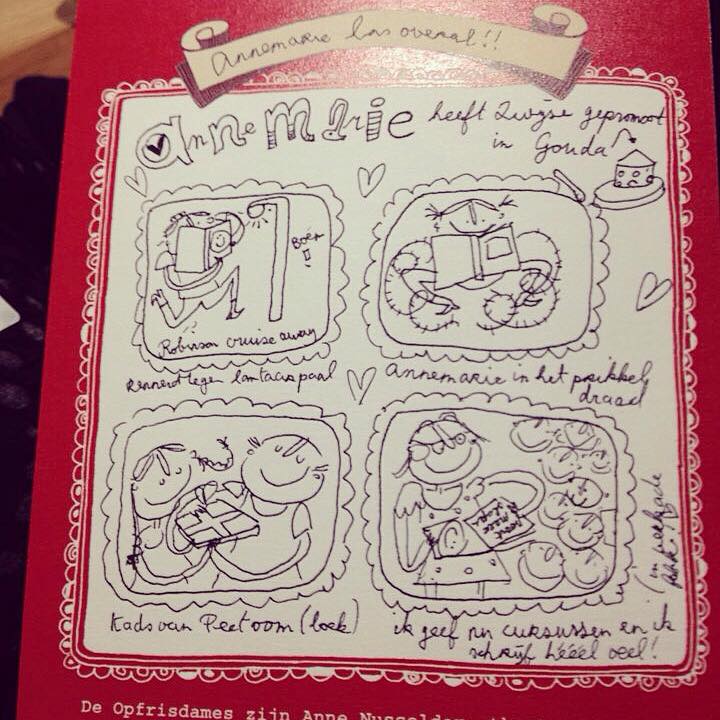 Annemarie las overal!!
annemarie heeft Zwijse gepromoot
in Gouda
Boek
Robinson cruise away
rennend tegen lantaarnpaal
annemarie in het prikkel
draad
Kado van Peetoom (boek)
ik geef nu cursussen en ik
schrijf héééél veel!
De Opfrisdames zijn Anne